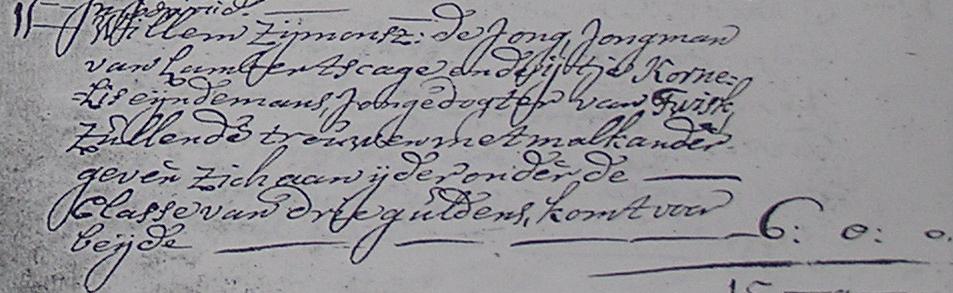 Willem Zijmonsz: de Jong, Jongman
van Lambertscage en Trijntje Korne=
=lis eijndemans, Jongedogter van Twisk
Zullende trouwen met malkander
geven Zich aan ijder onder de
Classe van drie guldens, komt voor
beijde 6: 0: 0.